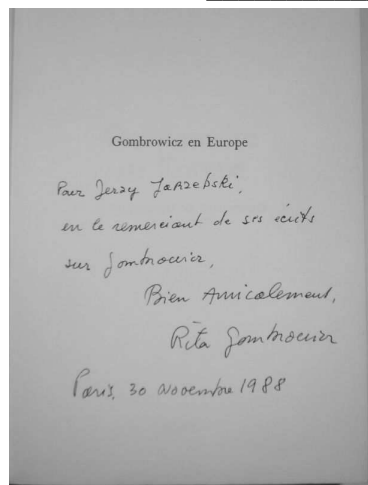 Gombrowicz en Europe
Pour Jerzy Jarzebski,
en le remerciant de ses écrits
sur Gombrowicz,
Bien Amicalement,
Rita Gombrowicz
Paris, 30 novembre 1988